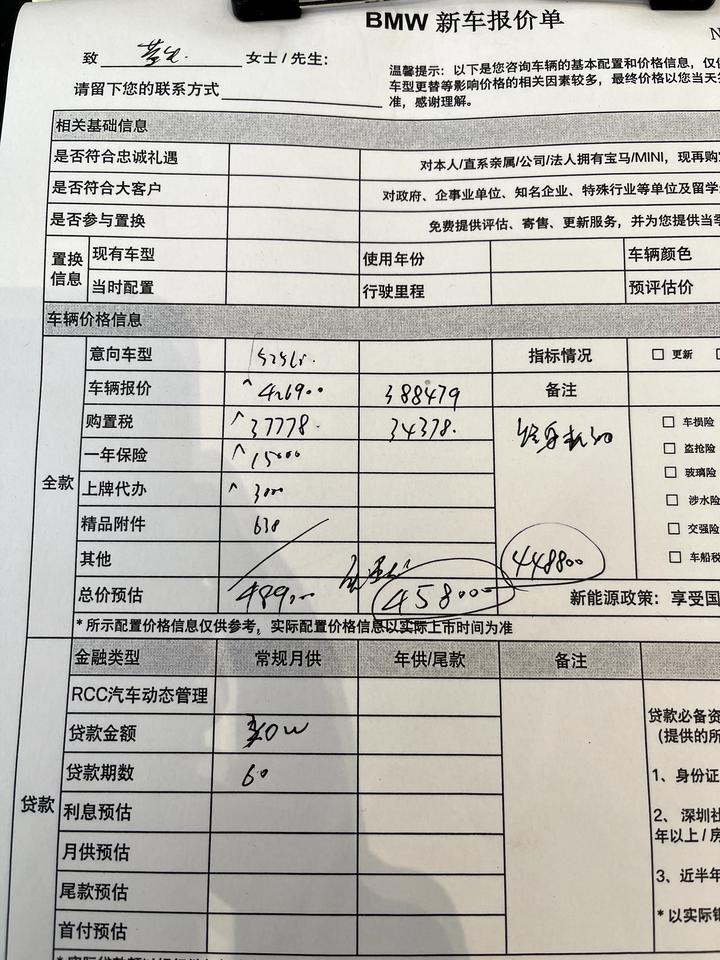 BMW 新车报价单
N
致 女士 / 先生：
温馨提示：以下是您咨询车辆的基本配置和价格信息，仅
车型更替等影响价格的相关因素较多，最终价格以您当天
准，感谢理解。
请留下您的联系方式
相关基础信息
是否符合忠诚礼遇 对本人/直系亲属/公司/法人拥有宝马/MINI，现再购
是否符合大客户 对政府、企事业单位、知名企业、特殊行业等单位及留学
是否参与置换 免费提供评估、寄售、更新服务，并为您提供当
置换信息 现有车型 使用年份 车辆颜色
当时配置 行驶里程 预评估价
车辆价格信息
全款 意向车型 525Li. 指标情况 □ 更新
车辆报价 ^ 426900 388479 备注
购置税 ^ 37778. 34378. □ 车损险
一年保险 ^ 15000 □ 盗抢险
□ 玻璃险
上牌代办 ^ 3000 □ 涉水险
精品附件 638 □ 交强险
其他 448800 □ 车船税
总价预估 458000 新能源政策：享受国
* 所示配置价格信息仅供参考，实际配置价格信息以实际上市时间为准
贷款 金融类型 常规月供 年供/尾款 备注
RCC汽车动态管理
贷款金额 30W 贷款必备资
(提供的所
贷款期数 60 1、身份证
利息预估 2、深圳社
年以上 / 房
月供预估
尾款预估 3、近半年
首付预估 * 以实际银